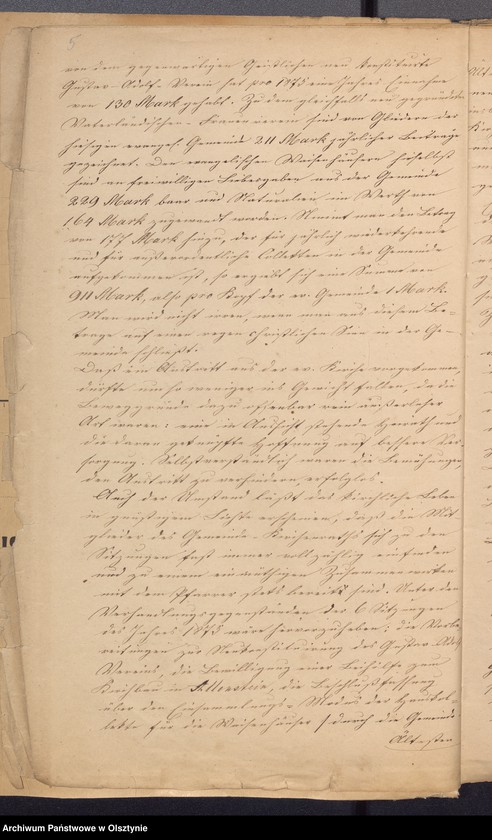 5
von dem gegenwärtigen Geistlichen neu konstituirte
Gustav-Adolf-Verein hat pro 1875 eine Jahres Einnahme
von 130 Mark gehabt. Zu dem gleichfalls neu gegründeten
Vaterländischen-Frauenverein sind von Gliedern der
hiesigen evangel. Gemeinde 211 Mark jährlicher Beiträge
gezeichnet. Den evangelischen Waisenhäusern hieselbst
sind an freiwilligen Liebesgaben aus der Gemeinde
229 Mark baar und Naturalien im Werth von
164 Mark zugewandt worden. Nimmt man den Betrag
von 177 Mark hinzu, der für jährlich wiederkehrende
und für außerordentliche Collekten in der Gemeinde
aufgekommen ist, so ergiebt sich eine Summe von
911 Mark, also pro Kopf der ev. Gemeinde 1 Mark.
Man wird nicht irren, wenn man aus diesem Be-
trage auf einen regen christlichen Sinn in der Ge-
meinde schließt.
Daß ein Austritt aus der ev. Kirche vorgekommen,
dürfte um so weniger ins Gewicht fallen, da die
Beweggründe dazu offenbar rein äußerlicher
Art waren: eine in Aussicht stehende Heirath und
die daran geknüpfte Hoffnung auf bessere Ver-
sorgung. Selbstverständlich waren die Bemühungen,
den Austritt zu verhindern erfolglos.
Auch der Umstand läßt das kirchliche Leben
in günstigem Lichte erscheinen, daß die Mit-
glieder des Gemeinde-Kirchenraths sich zu den
Sitzungen fast immer vollzählig einfinden
und zu einem einmüthigen Zusammenwirken
mit dem Pfarrer stets bereit sind. Unter den
Verhandlungsgegenständen der 6 Sitzungen
des Jahres 1875 wäre hervorzuheben: die Vorbe-
reitungen zur Neukonstituirung des Gustav-Adolf
Vereins, die Bewilligung einer Beihülfe zum
Kirchbau in, die Beschlußfassung
über den Einsammlungs-Modus der Hauskol-
lekte für die Waisenhäuser (durch die Gemeinde
Ältesten
Archiwum Państwowe w Olsztynie